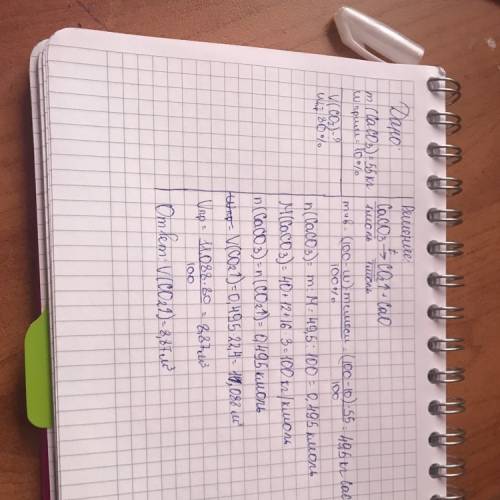 Дано:
m(CaCO3) = 55 кг
wприм = 10%
V(CO2) - ?
= 80%
Решение:
CaCO3 t→ CO2↑ + CaO
1моль 1моль
mчв = (100-w)·mсмеси / 100% = (100-10)·55 / 100 = 49,5 кг
n(CaCO3) = m : M = 49,5 : 100 = 0,495 кмоль
M(CaCO3) = 40+12+16·3 = 100 кг/кмоль
n(CaCO3) = n(CO2↑) = 0,495 кмоль
V(CO2↑) = 0,495·22,4 = 11,088 м³
Vпр = 11,088·80 / 100 = 8,87 м³
Ответ: V(CO2↑) = 8,87 м³